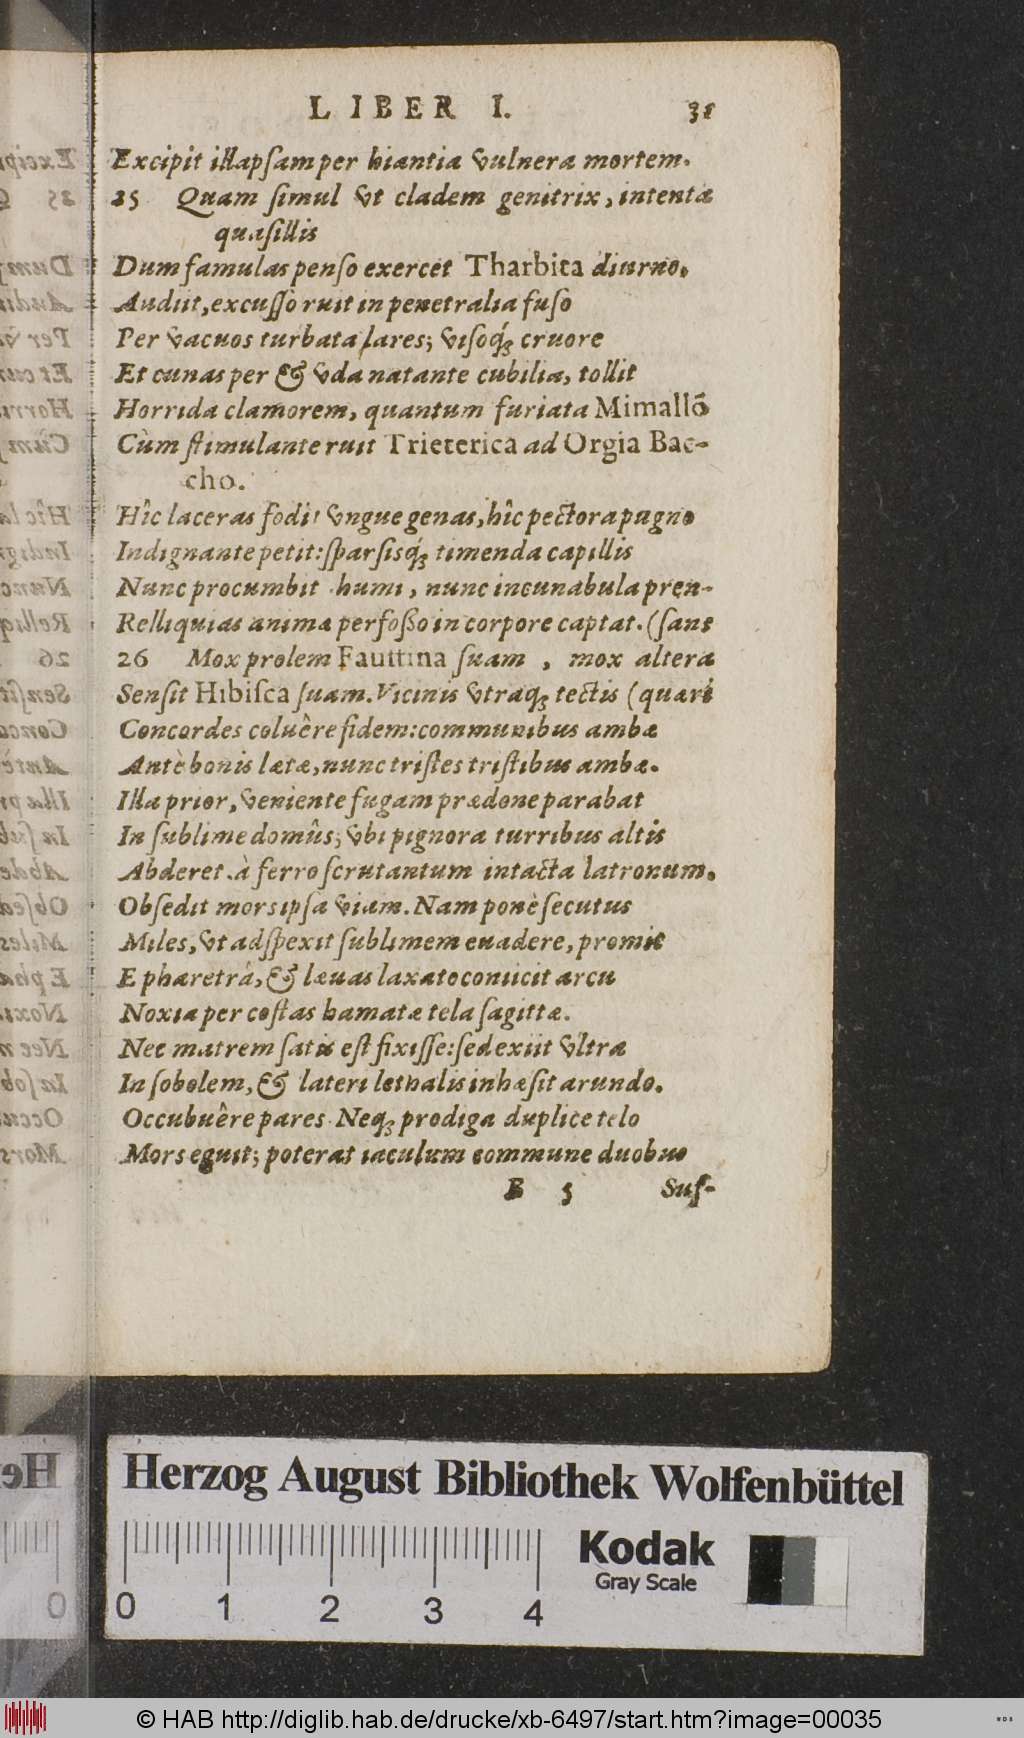 LIBER I. 31
Excipit illapſam per hiantia vulnera mortem.
25 Quam ſimul vt cladem genitrix, intenta
quaſillis
Dum famulas penſo exercet Tharbita diurno,
Audiit, excuſſo ruit in penetralia fuſo
Per vacuos turbata lares; viſoq́; cruore
Et cunas per & vda natante cubilia, tollit
Horrida clamorem, quantum furiata Mimallō
Cùm ſtimulante ruit Trieterica ad Orgia Bac-
cho.
Hîc laceras fodit vngue genas, hîc pectora pugno
Indignante petit: ſparſisq́; timenda capillis
Nunc procumbit humi, nunc incunabula pren-
Relliquias animæ perfoſſo in corpore captat. (ſans
26 Mox prolem Fauſtina ſuam, mox altera
Senſit Hibiſca ſuam. Vicinis vtraq; tectis (quare
Concordes coluêre fidem: communibus ambæ
Antè bonis lætæ, nunc triſtes triſtibus ambæ.
Illa prior, veniente fugam prædone parabat
In ſublime domûs; vbi pignora turribus altis
Abderet à ferro ſcrutantum intacta latronum.
Obſedit mors ipſa viam. Nam ponè ſecutus
Miles, vt adſpexit ſublimem euadere, promit
E pharetrâ, & læuas laxato coniicit arcu
Noxia per coſtas hamatæ tela ſagittæ.
Nec matrem ſatis eſt fixiſſe: ſed exiit vltra
In ſobolem, & lateri lethalis inhæſit arundo.
Occubuêre pares. Neq; prodiga duplice telo
Mors eguit; poterat iaculum commune duobus
B 5 Suſ-
Herzog August Bibliothek Wolfenbüttel
0 1 2 3 4
Kodak
Gray Scale
© HAB http://diglib.hab.de/drucke/xb-6497/start.htm?image=00035